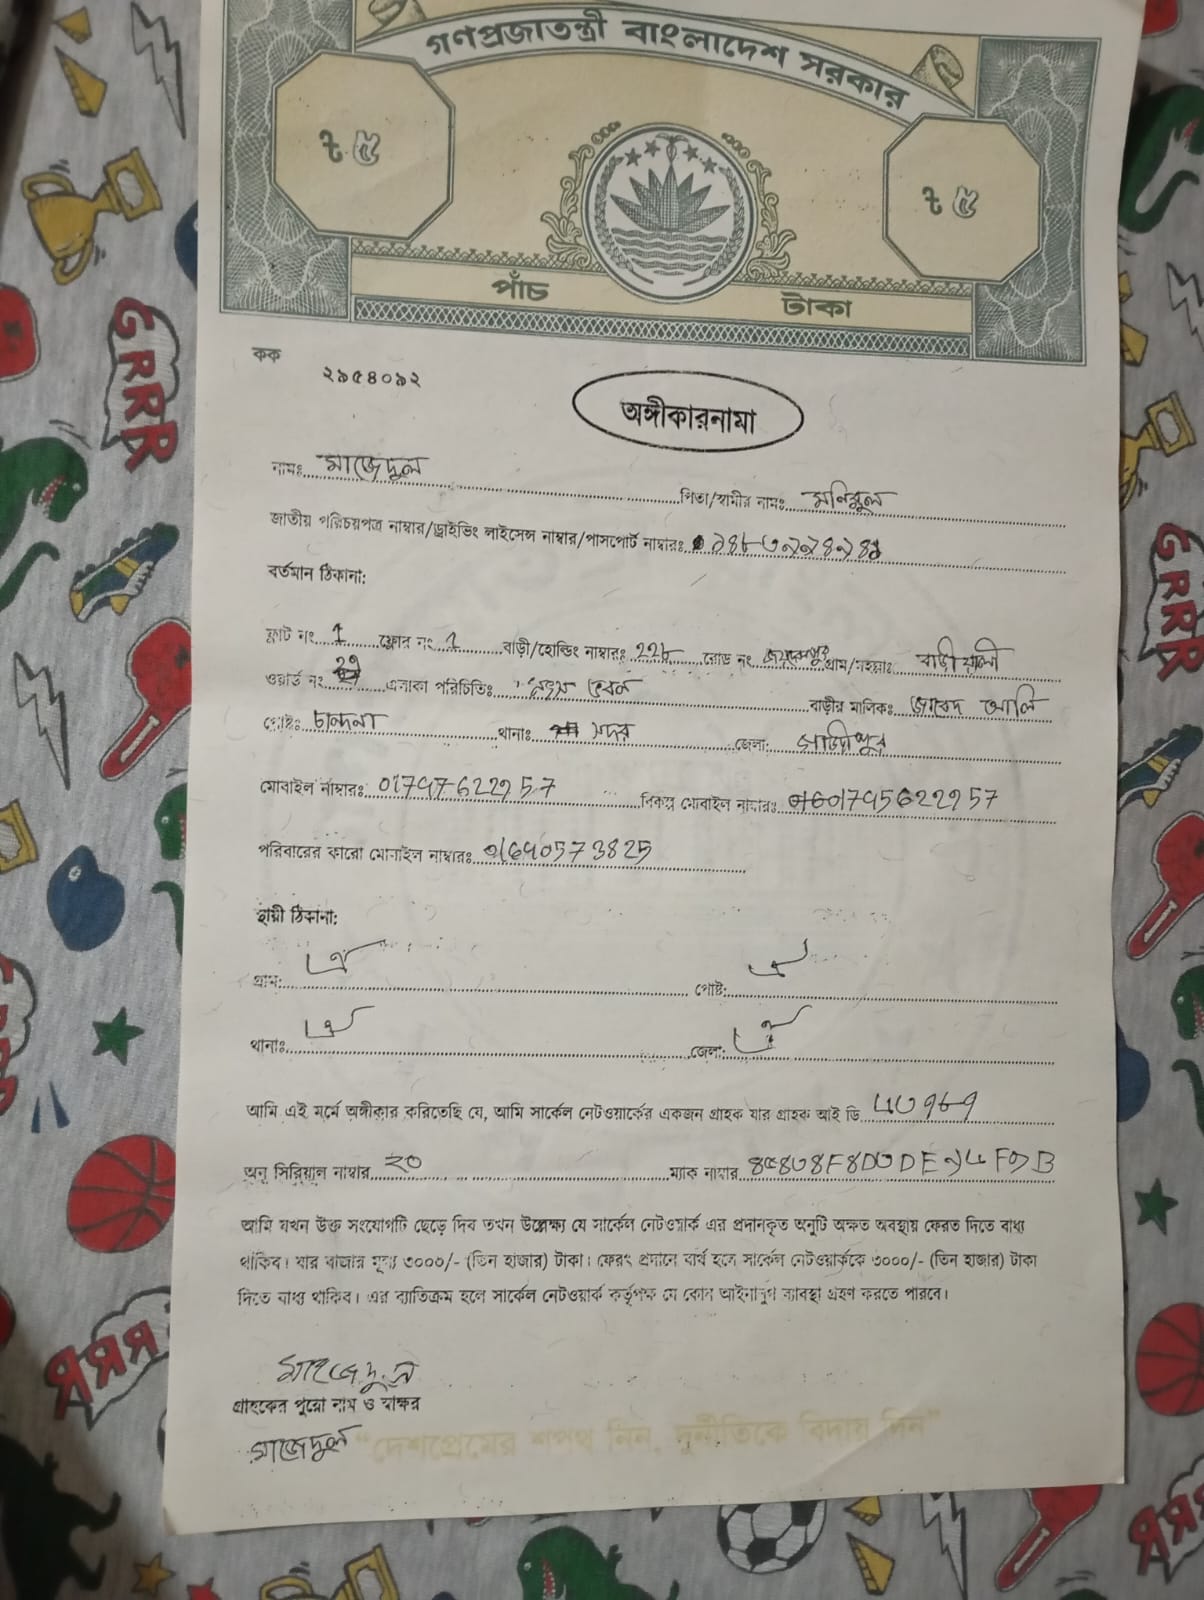 গণপ্রজাতন্ত্রী বাংলাদেশ সরকার
৳ ৫ ৳ ৫
পাঁচ টাকা
কক ২৯৫৪০৯২
অঙ্গীকারনামা
নামঃ মাজেদুল পিতা/স্বামীর নামঃ মনিরুল
জাতীয় পরিচয়পত্র নাম্বার/ড্রাইভিং লাইসেন্স নাম্বার/পাসপোর্ট নাম্বারঃ
বর্তমান ঠিকানা:
ফ্লাট নং 1 ফ্লোর নং 1 বাড়ী/হোল্ডিং নাম্বারঃ ২২৮ রোড নং গ্রাম/মহল্লাঃ
ওয়ার্ড নং এলাকা পরিচিতিঃ বাড়ীর মালিকঃ জাবেদ আলি
পোষ্টঃ চান্দনা থানাঃ সদর জেলা: গাজীপুর
মোবাইল নাম্বারঃ বিকল্প মোবাইল নাম্বারঃ
পরিবারের কারো মোবাইল নাম্বারঃ 01640573825
স্থায়ী ঠিকানা:
গ্রাম: ঐ পোষ্ট: ঐ
থানাঃ ঐ জেলা: ঐ
আমি এই মর্মে অঙ্গীকার করিতেছি যে, আমি সার্কেল নেটওয়ার্কের একজন গ্রাহক যার গ্রাহক আই ডি
অনু সিরিয়াল নাম্বার ২০ ম্যাক নাম্বার
আমি যখন উক্ত সংযোগটি ছেড়ে দিব তখন উল্লেক্ষ্য যে সার্কেল নেটওয়ার্ক এর প্রদানকৃত অনুটি অক্ষত অবস্থায় ফেরত দিতে বাধ্য
থাকিব। যার বাজার মূল্য ৩০০০/- (তিন হাজার) টাকা। ফেরৎ প্রদানে ব্যর্থ হলে সার্কেল নেটওয়ার্ককে ৩০০০/- (তিন হাজার) টাকা
দিতে বাধ্য থাকিব। এর ব্যতিক্রম হলে সার্কেল নেটওয়ার্ক কর্তৃপক্ষ যে কোন আইনানুগ ব্যবস্থা গ্রহণ করতে পারবে।
মাজেদুল
গ্রাহকের পুরো নাম ও স্বাক্ষর
মাজেদুল
"দেশপ্রেমের শপথ নিন, দুর্নীতিকে বিদায় দিন"